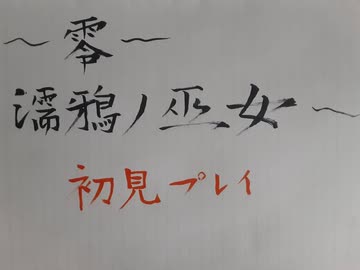 ～零～
濡鴉ノ巫女～
初見プレイ